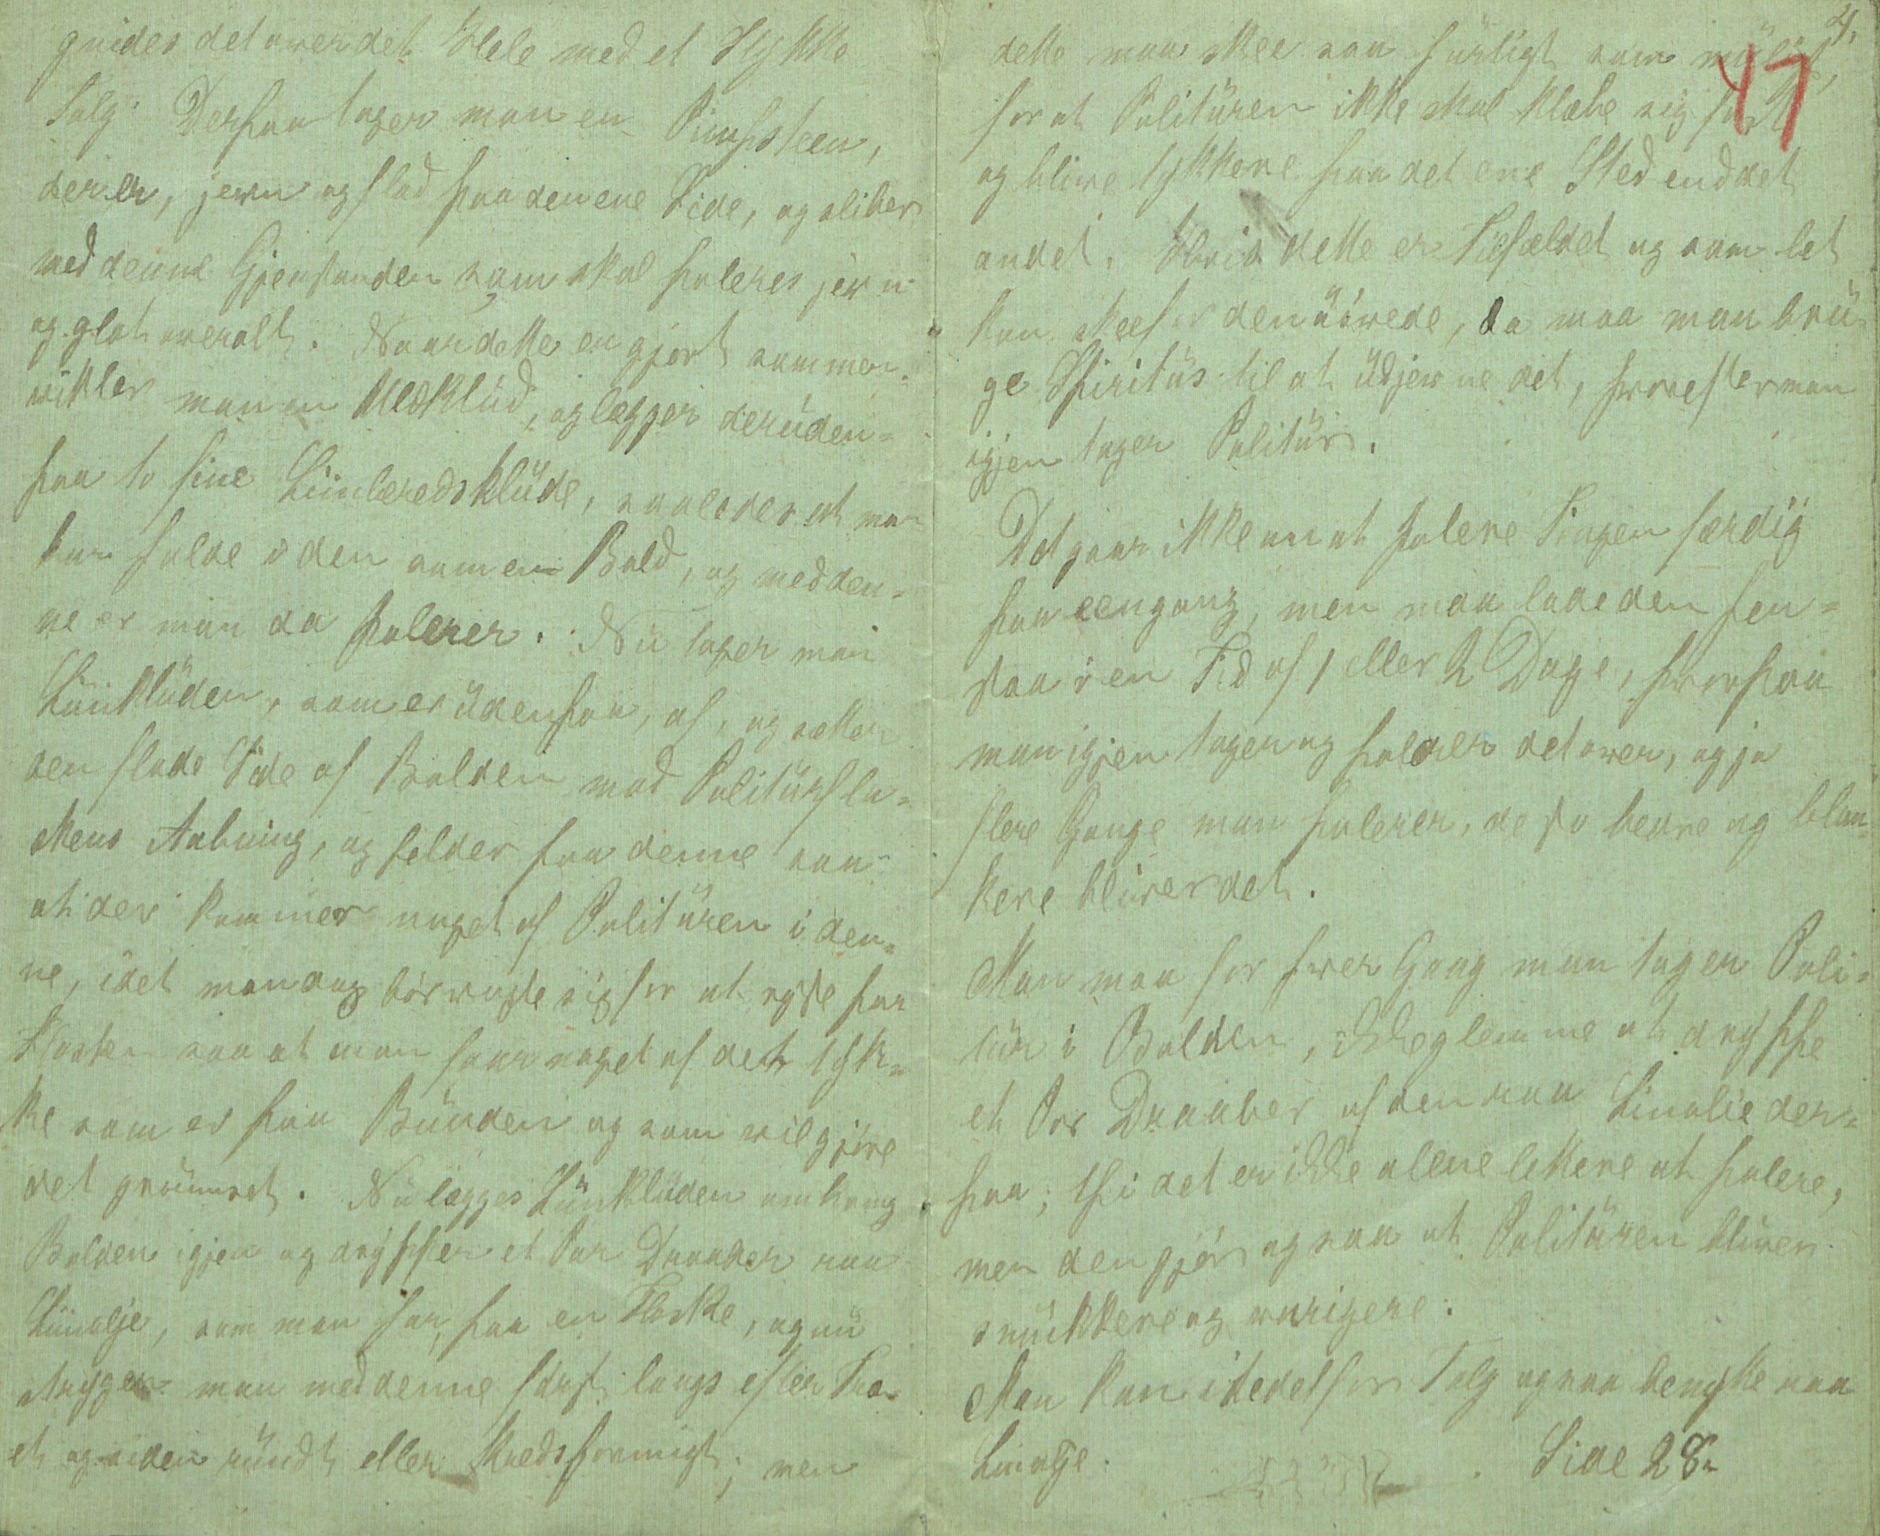 gnides det over det Hele med et Stykke
Talg. Derpaa tager man en Pimpsteen,
der er, jevn og flad paa den ene Side, og sliber
med denne Gjenstanden som skal poleres jevn
og glat overalt. Naar dette er gjort sammen-
vikler man en Uldklud, og lægger deruden-
paa to fine Linlærredsklude, saaledes at man
kan holde i den som en Bold, og med den-
ne er man da polerer. Nu tager man
Linkluden, som er udenpaa, af, og sætter
den flade Side af Bolden mod Politurfla-
skens Aabning, og helder paa denne saa
at der kommer noget af Polituren i den-
ne, idet man dog bør vogte sig for at ryste paa
Flasken saa at man faar noget af det tyk-
ke som er paa Bunden og som vil gjøre
det grumset. Nu lægges Linkluden omkring
Bolden igjen og drypper et Par Draaber raa
Linolje, som man har paa en Flaske, og nu
stryger man med denne først langs efter Træ-
et og siden rundt eller kredsformigt; men
4.
47
dette maa skee saa hurtigt som muligt,
for at Polituren ikke skal klæbe sig fast
og blive tykkere paa det ene Sted end det
andet. Hvis dette er Tilfældet og som let
kan skee for den uøvede, da maa man bru-
ge Spiritus til at udjevne det, hvorefter man
igjen tager Politur.
Det gaar ikke an at polere Tingen færdig
paa eengang, men maa lade den hen-
staa i en Tid af 1 eller 2 Dage, hvorpaa
man igjen tager og polerer det over, og jo
flere Gange man polerer, desto bedre og blan-
kere bliver det.
Man maa for hver Gang man tager Poli-
tur i Bolden, ikke glemme at dryppe
et Par Draaber af den raa Linolie der-
paa; thi det er ikke alene lettere at polere,
men den gjør ogsaa at Polituren bliver
smukkere og varigere.
Man kan istedetfor Talg ogsaa benytte raa
Linolje. Side 28